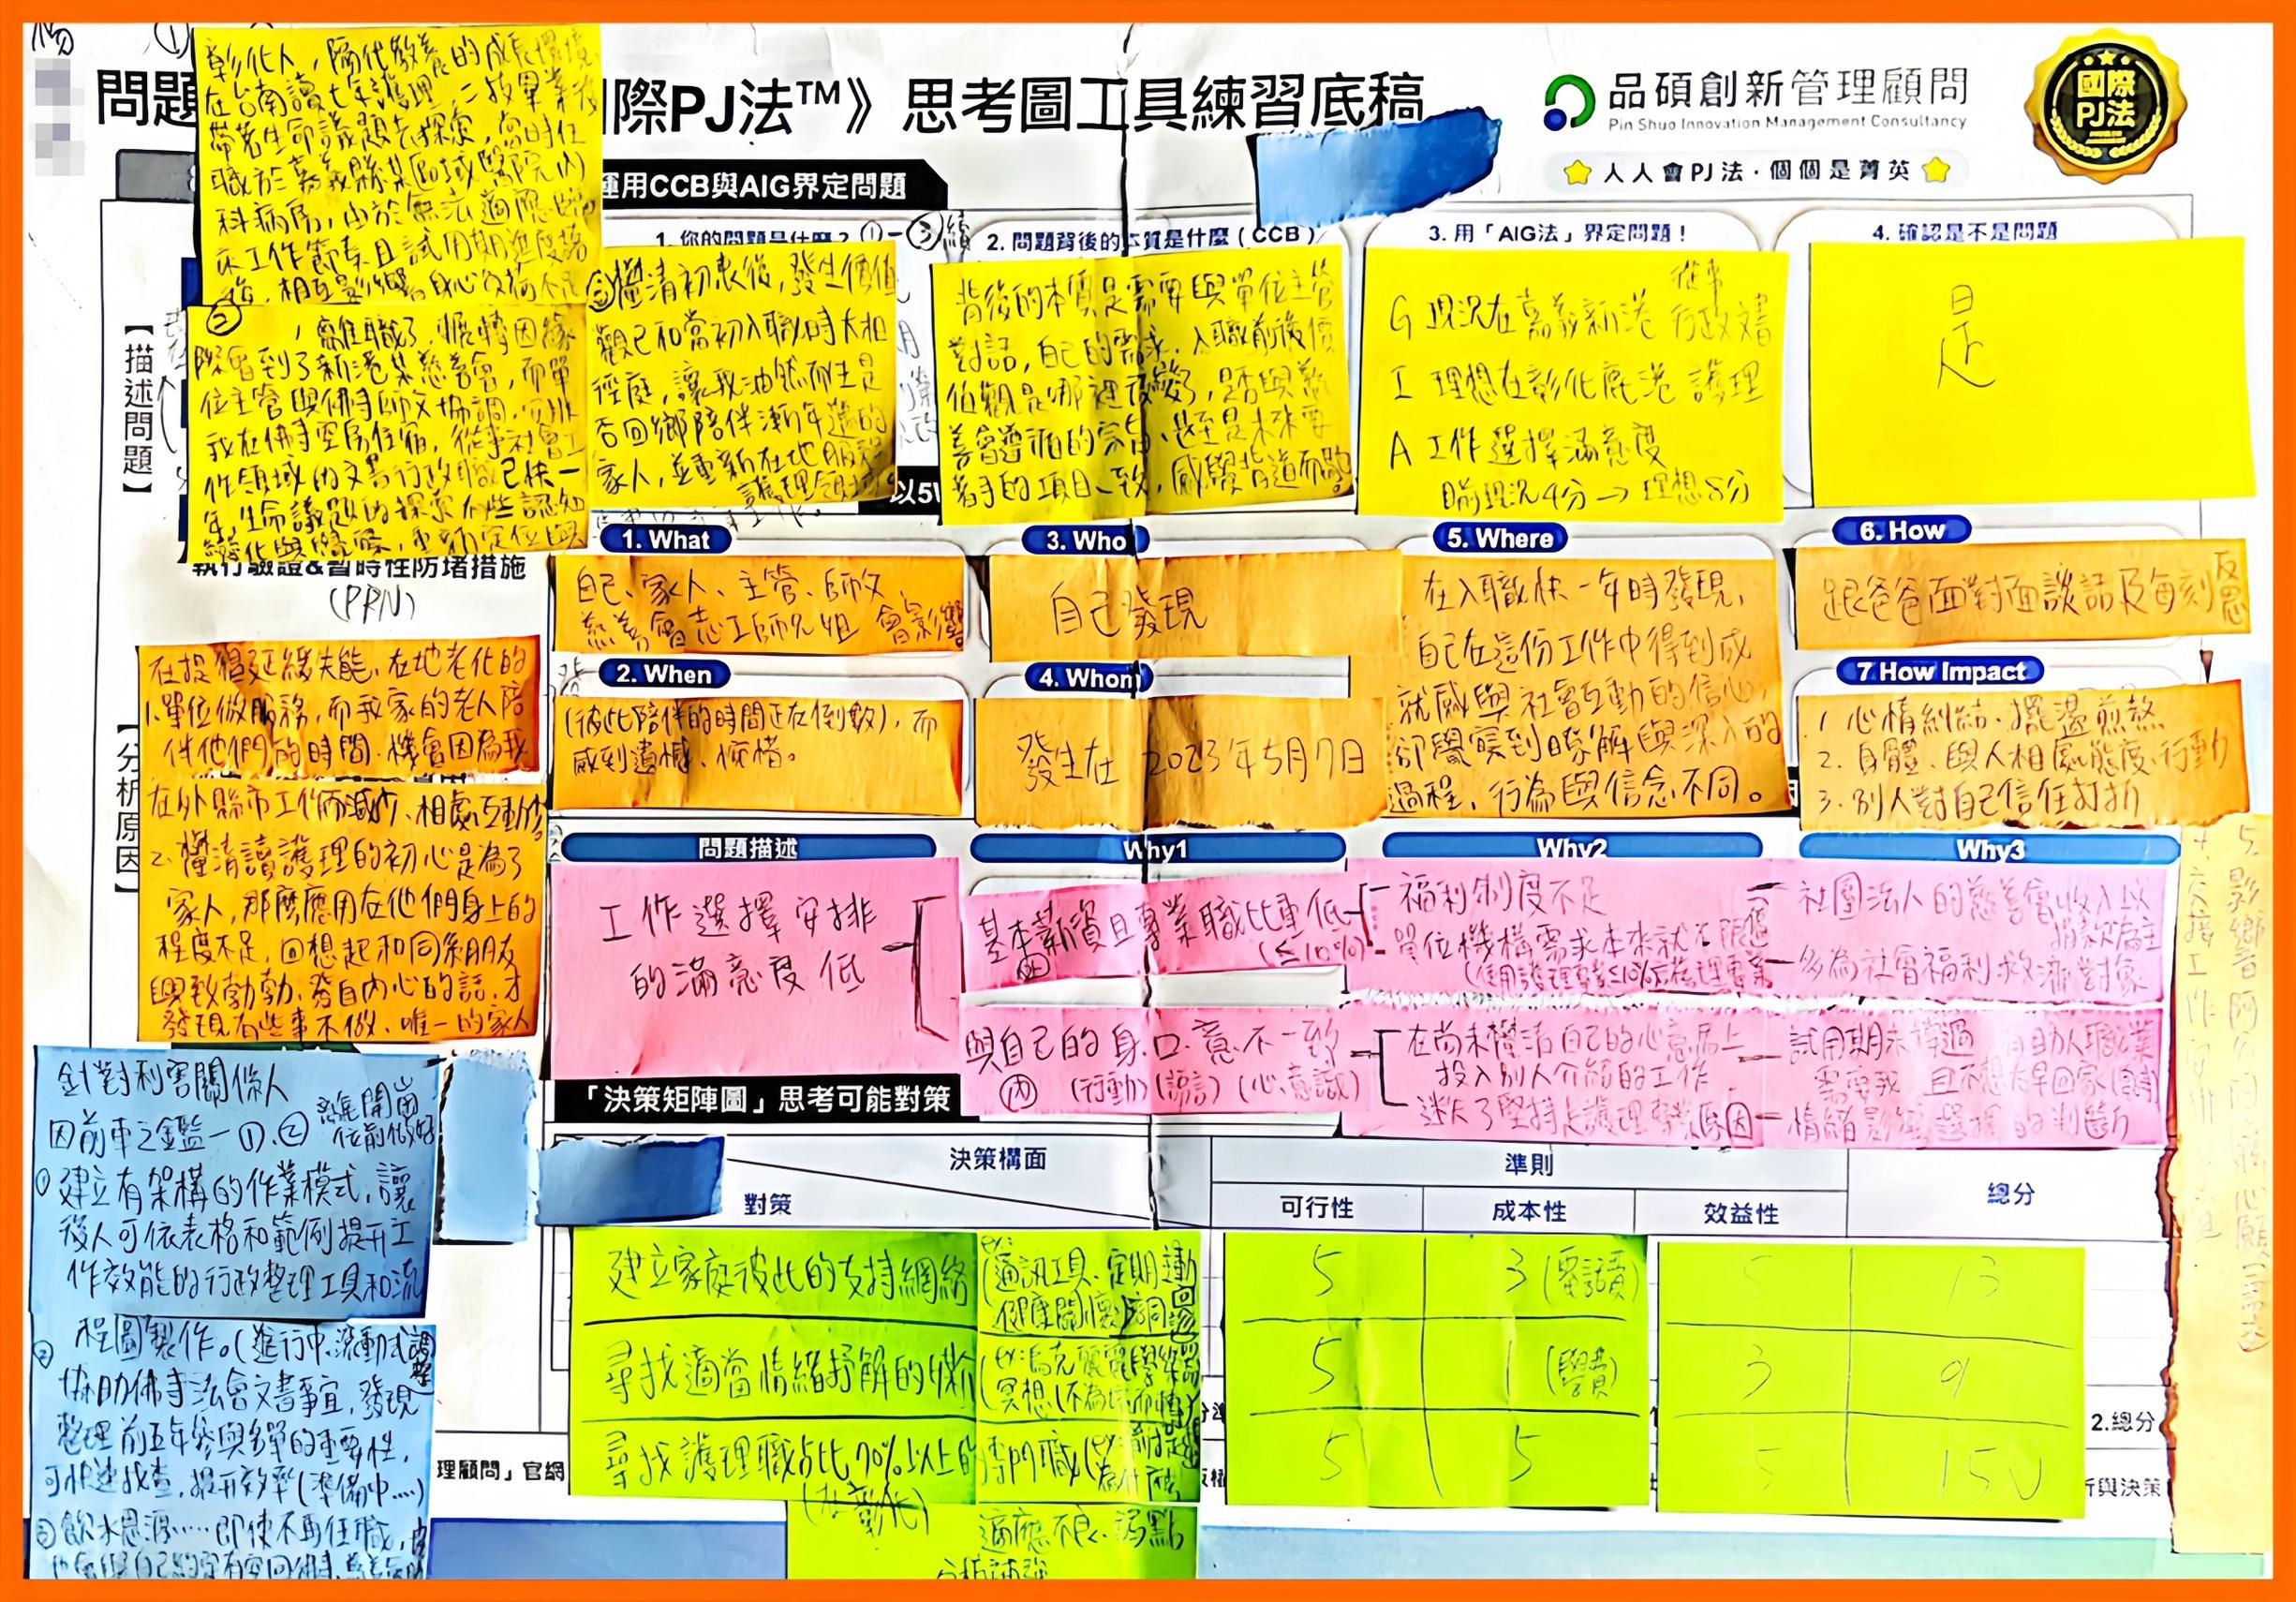 問題
際PJ法™》思考圖工具練習底稿
品碩創新管理顧問
Pin Shuo Innovation Management Consultancy
人人會PJ法·個個是菁英
國際
PJ法
彰化人，隔代教養的成長環境
在台南讀七年護理，二技畢業後
帶著生命議題去探索，當時任
職於嘉義縣某區域醫院內
科病房，由於無法適應臨
床工作節奏且試用期進度落
後，相互影響身心
②，離職了，輾轉因緣
際會到了新港某慈善會，而單
位主管與佛寺師父協調，安排
我在佛寺空房住宿，從事社會工
作領域的文書行政職已快一
年，生命議題的探索有些認知
運用CCB與AIG界定問題
1. 你的問題是什麼？①-③續
③懂清初衷後，發生價值
觀已和當初入職時大相
徑庭，讓我油然而生是
否回鄉陪伴漸年邁的
家人，並重新在地服務
護理領域。
2. 問題背後的本質是什麼（CCB）
背後的本質是需要與單位主管
對話，自己的需求、入職前後價
值觀是哪裡改變了，是否與慈
善會遵循的宗旨、甚至是未來要
著手的項目一致，感覺背道而馳。
3. 用「AIG法」界定問題！
G 現況在嘉義新港 從事行政文書
I 理想在彰化鹿港 護理
A 工作選擇滿意度
目前現況4分→理想8分
4. 確認是不是問題
是
【描述問題】
以5
執行驗證&暫時性防堵措施
(PRN)
1. What
自己、家人、主管、師父、
慈善會志工師兄姐 會影響
2. When
(彼此陪伴的時間正在倒數)，而
感到遺憾、惋惜。
3. Who
自己發現
4. Whom
發生在 2023年5月7日
5. Where
在入職快一年時發現，
自己在這份工作中得到成
就感與社會互動的信心，
卻聞嗅到瞭解與深入的
過程，行為與信念不同。
6. How
跟爸爸面對面談話及每刻反思
7 How Impact
1. 心情糾結、擺盪煎熬
2. 身體、與人相處態度、行動
3. 別人對自己信任打折
4. 交接工作
5. 影響阿公的心願
【分析原因】
在提倡延緩失能、在地老化的
1.單位做服務，而我家的老人陪
伴他們的時間、機會因為我
在外縣市工作而減少、相處互動少。
2. 懂清讀護理的初心是為了
家人，那麼應用在他們身上的
程度不足，回想起和同系朋友
興致勃勃、發自內心的話，才
發現有些事不做，唯一的家人
問題描述
工作選擇安排
的滿意度低
Why1
基本薪資且專業職比重低
(≤10%)
與自己的身、口、意不一致
內 (行動) (語言) (心、意識)
Why2
福利制度不足
單位機構需求本來就不
在尚未懂清自己的心意馬上
投入別人介紹的工作
迷失了堅持走護理專業原因
Why3
社團法人的慈善會收入以
捐款為主
多為社會福利救濟對象
試用期未撐過，有助人職業
需要我，且不想太早回家
情緒影響選擇的判斷
「決策矩陣圖」思考可能對策
決策構面
對策
準則
可行性
成本性
效益性
總分
建立家庭彼此的支持網絡
(通訊工具、定期運動
健康關懷、陪同回診)
5
3 (電話費)
5
13
尋找適當情緒抒解的媒介
冥想
5
1 (學費)
3
9
尋找護理職占比70%以上的專門職
(在彰化)
5
5
5
15 ∨
適應不良、弱點
針對利害關係人
因前車之鑑一①、②
離開崗位前做好
①建立有架構的作業模式，讓
後人可依表格和範例提升工
作效能的行政整理工具和流
程圖製作。(進行中、滾動式調整)
②協助佛寺法會文書事宜，發現
整理前五年參與名單的重要性，
可快速找查，提升效率(準備中....)
③飲水思源……即使不再任職，
理顧問」官網
2.總分
析與決策